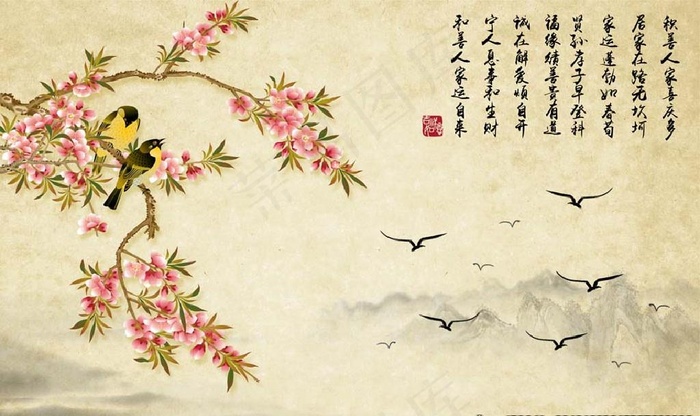 积善人家喜庆多
居家在路无坎坷
家运蓬勃如春苟
贤孙孝子早登科
福缘积善贵有道
诚在解爱烦自开
宁人息事和生财
和善人家运自来